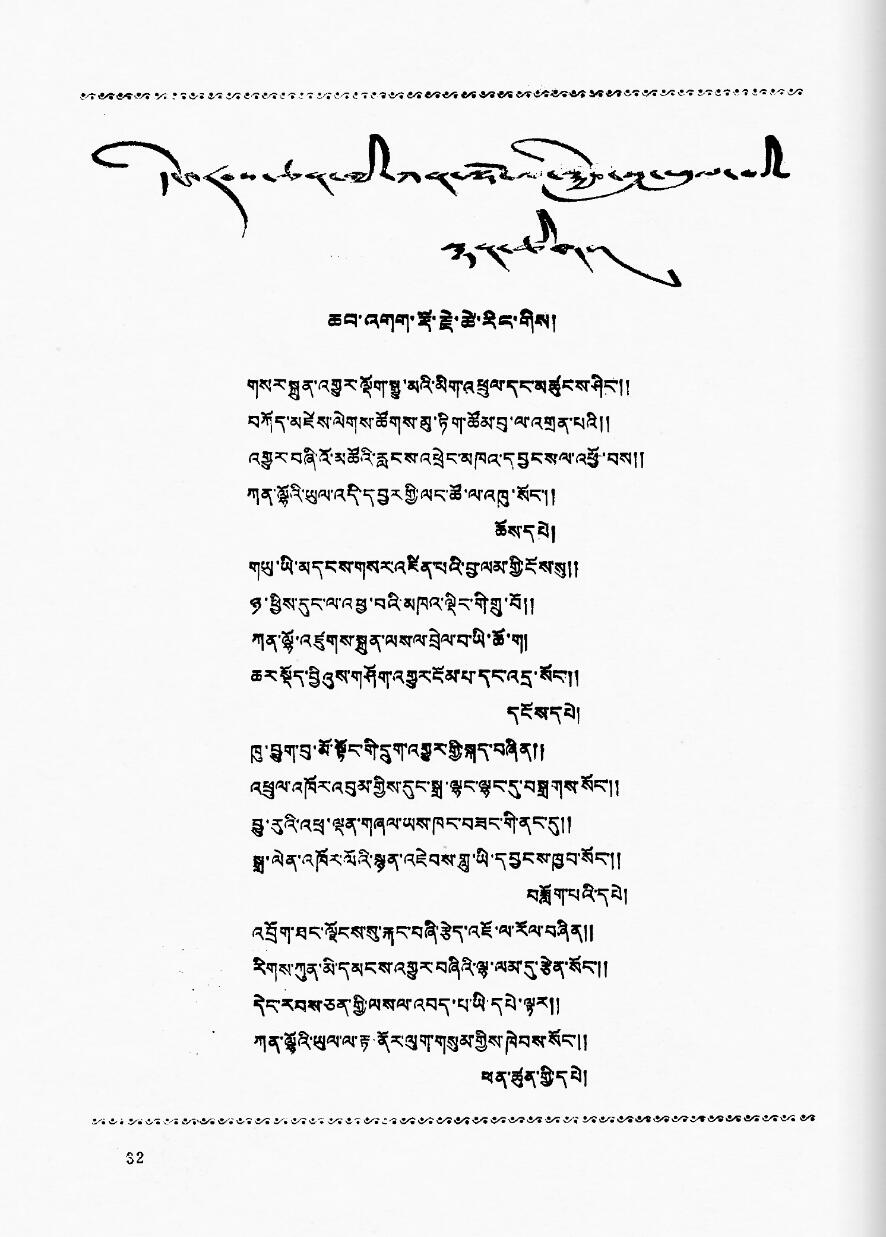 ཆབ་འགག་རྡོ་རྗེ་ཚེ་རིང་གིས།
གསར་སྐྲུན་འགྱུར་ལྡོག་སྒྱུ་མའི་མིག་འཕྲུལ་དང་མཚུངས་ཤིང་།།
བཀོད་མཛེས་ལེགས་ཚོགས་མུ་ཏིག་ཚོམ་བུ་ལ་འགྲན་པའི།།
འགྱུར་བཞི་འོ་མཚོའི་རླངས་འཕྲེང་མཁའ་དབྱངས་ལ་འཕྱོ་བས།།
ཀན་ལྷོའི་ཡུལ་འདི་དབྱར་གྱི་ལང་ཚོ་ལ་འཁྲུ་སོང་།།
ཆོས་དཔེ།
གཡུ་ཡི་མདངས་གསར་འཛིན་པའི་བྲུ་ལམ་གྱི་ངོས་སུ།།
ཉ་ཕྱིས་དུང་ལ་འཕྱ་བའི་མཁའ་ལྡིང་གི་གྲུ་བོ།།
ཀན་ལྷོ་འཛུགས་སྐྲུན་ལས་ལ་བྲེལ་བ་ཡི་ཚོ་ག།
ཆར་སྔོད་བྱིའུས་གཤོག་འགྱུར་ངོམ་པ་དང་འདྲ་སོང་།།
དངོས་དཔེ།
ཁུ་བྱུག་བུ་མོ་སྟོང་གི་དྲུག་འགྱུར་གྱི་སྐད་བཞིན།།
འཕྲུལ་འཁོར་འབུམ་གྱིས་དུང་སྒྲ་ལྷང་ལྷང་དུ་བསྒྲགས་སོང་།།
བྱུ་རུའི་འཕྲ་ལྡན་གཞལ་ཡས་ཁང་བཟང་གི་ནང་དུ།།
སྒྲ་ལེན་འཁོར་ལོའི་སྙན་འཇེབས་གླུ་ཡི་དབྱངས་ཁྱབ་སོང་།།
བཟློག་པའི་དཔེ།
འབྲོག་ཐང་ལྗོངས་སུ་རྐང་བཞི་རྩེད་འཇོ་ལ་རོལ་བཞིན།།
རིགས་ཀུན་མི་དམངས་འགྱུར་བཞིའི་ལྷ་ལམ་དུ་རྩེན་སོང་།།
དེང་རབས་ཅན་གྱི་ལས་ལ་འབད་པ་ཡི་དཔེ་ལྟར།།
ཀན་ལྷོའི་ཡུལ་ལ་རྟ་ནོར་ལུག་གསུམ་གྱིས་ཁེབས་སོང་།།
ཕན་ཚུན་གྱི་དཔེ།
32